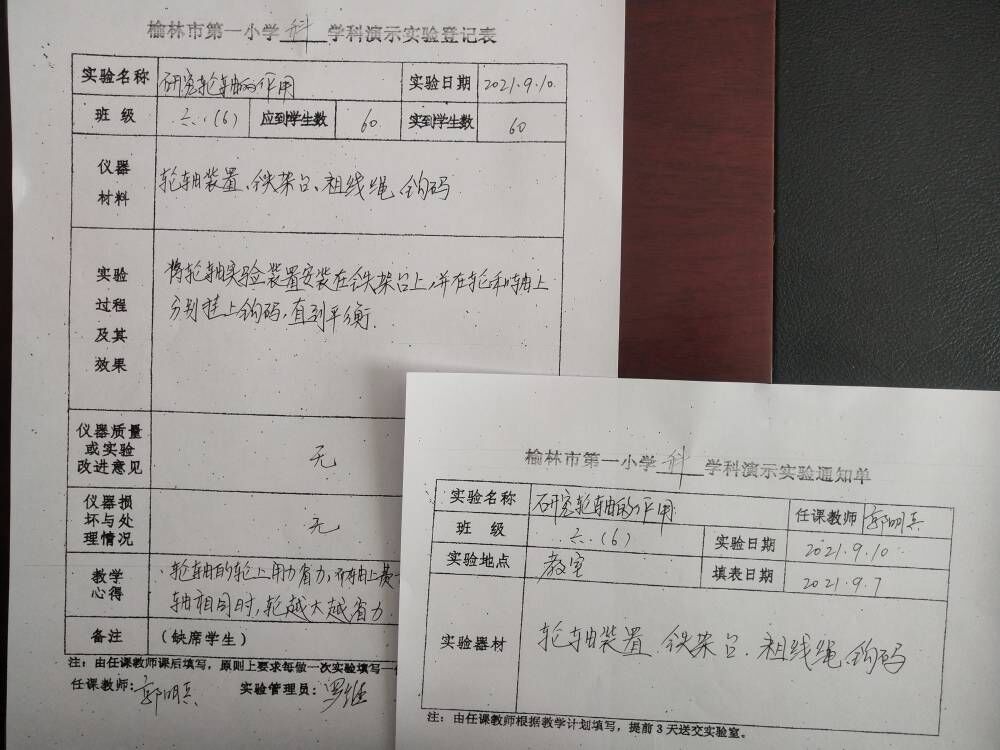 榆林市第一小学 科 学科演示实验登记表
实验名称 研究轮轴的作用 实验日期 2021.9.10.
班 级 六.(6) 应到学生数 60 实到学生数 60
仪器
材料
轮轴装置、铁架台、祖线绳、钩码
实验
过程
及其
效果
将轮轴实验装置安装在铁架台上,并在轮和轴上
分别挂上钩码,直到平衡.
仪器质量
或实验
改进意见
无
仪器损
坏与处
理情况
无
教学
心得
轮轴的轮上用力省力,而轴上费
轴相同时,轮越大越省力.
备注 (缺席学生)
注:由任课教师课后填写,原则上要求每做一次实验填写一
任课教师: 郭明 实验管理员:
榆林市第一小学 科 学科演示实验通知单
实验名称 研究轮轴的作用 任课教师 郭明
班 级 六.(6) 实验日期 2021.9.10
实验地点 教室 填表日期 2021.9.7
实验器材 轮轴装置、铁架台、祖线绳、钩码
注:由任课教师根据教学计划填写,提前3天送交实验室。